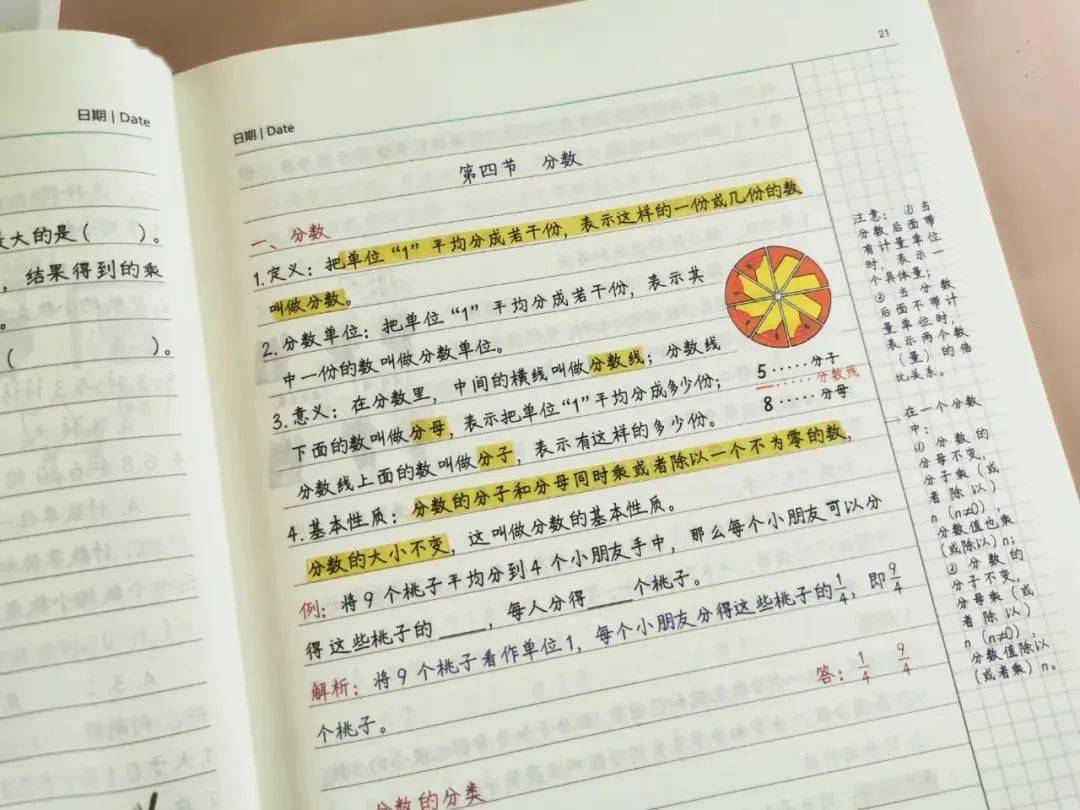 日期 | Date
大的是( )。
,结果得到的乘
。
( )。
21
日期 | Date
第四节 分数
一、分数
1.定义:把单位“1”平均分成若干份,表示这样的一份或几份的数
叫做分数。
2.分数单位:把单位“1”平均分成若干份,表示其
中一份的数叫做分数单位。
3.意义:在分数里,中间的横线叫做分数线;分数线
下面的数叫做分母,表示把单位“1”平均分成多少份;
分数线上面的数叫做分子,表示有这样的多少份。
5·····分子
—·····分数线
8·····分母
4.基本性质:分数的分子和分母同时乘或者除以一个不为零的数,
分数的大小不变,这叫做分数的基本性质。
例:将9个桃子平均分到4个小朋友手中,那么每个小朋友可以分
得这些桃子的____,每人分得____个桃子。
解析:将9个桃子看作单位1,每个小朋友分得这些桃子的1/4,即9/4
个桃子。
答:1/4 9/4
分数的分类
注意:①当
分数后面带
有计量单位
时,表示一
个具体量;
②当分数
后面不带计
量单位时,
表示两个数
(量)的倍
比关系。
→在一个分数
中:
①分数的
分母不变,
分子乘(或
者除以)
n(n≠0),
分数值也乘
(或除以)n;
②分数的
分子不变,
分母乘(或
者除以)
n(n≠0),
分数值除以
(或者乘)n。